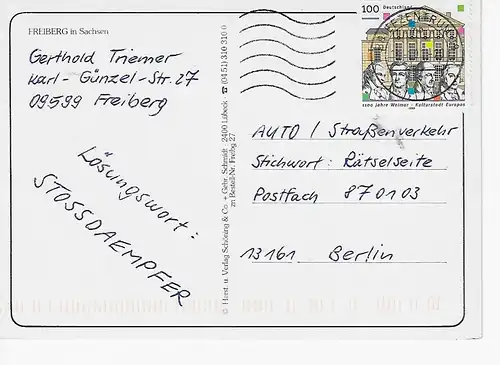 FREIBERG in Sachsen
Gerthold Triemer
Karl-Günzel-Str. 27
09599 Freiberg
Lösungswort:
STOSSDAEMPFER
© Herst. u. Verlag Schöning & Co. + Gebr. Schmidt · 2400 Lübeck ☎ (0451) 310 310 0
zu Bestell-Nr. Freibg 27
100 Deutschland
BRIEFZENTRUM
1100 Jahre Weimar - Kulturstadt Europas
AUTO / Straßenverkehr
Stichwort: Rätselseite
Postfach 870103
13161 Berlin